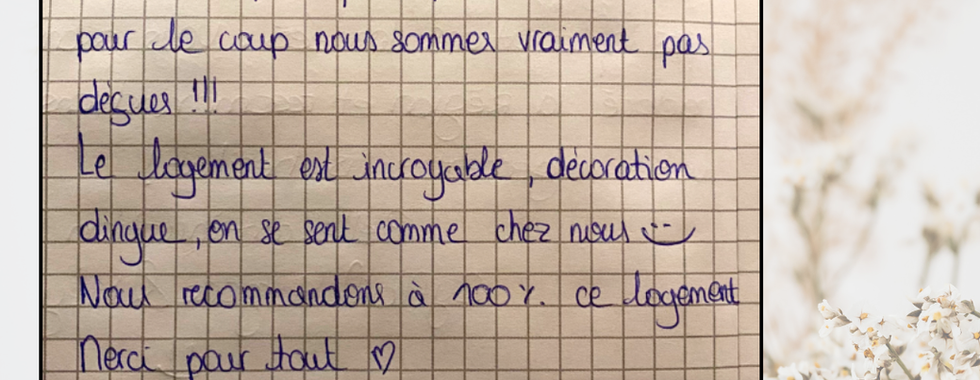 pour le coup nous sommes vraiment pas
déçues !!!
Le logement est incroyable, décoration
dingue, on se sent comme chez nous
Nous recommandons à 100%. ce logement
Merci pour tout ♡